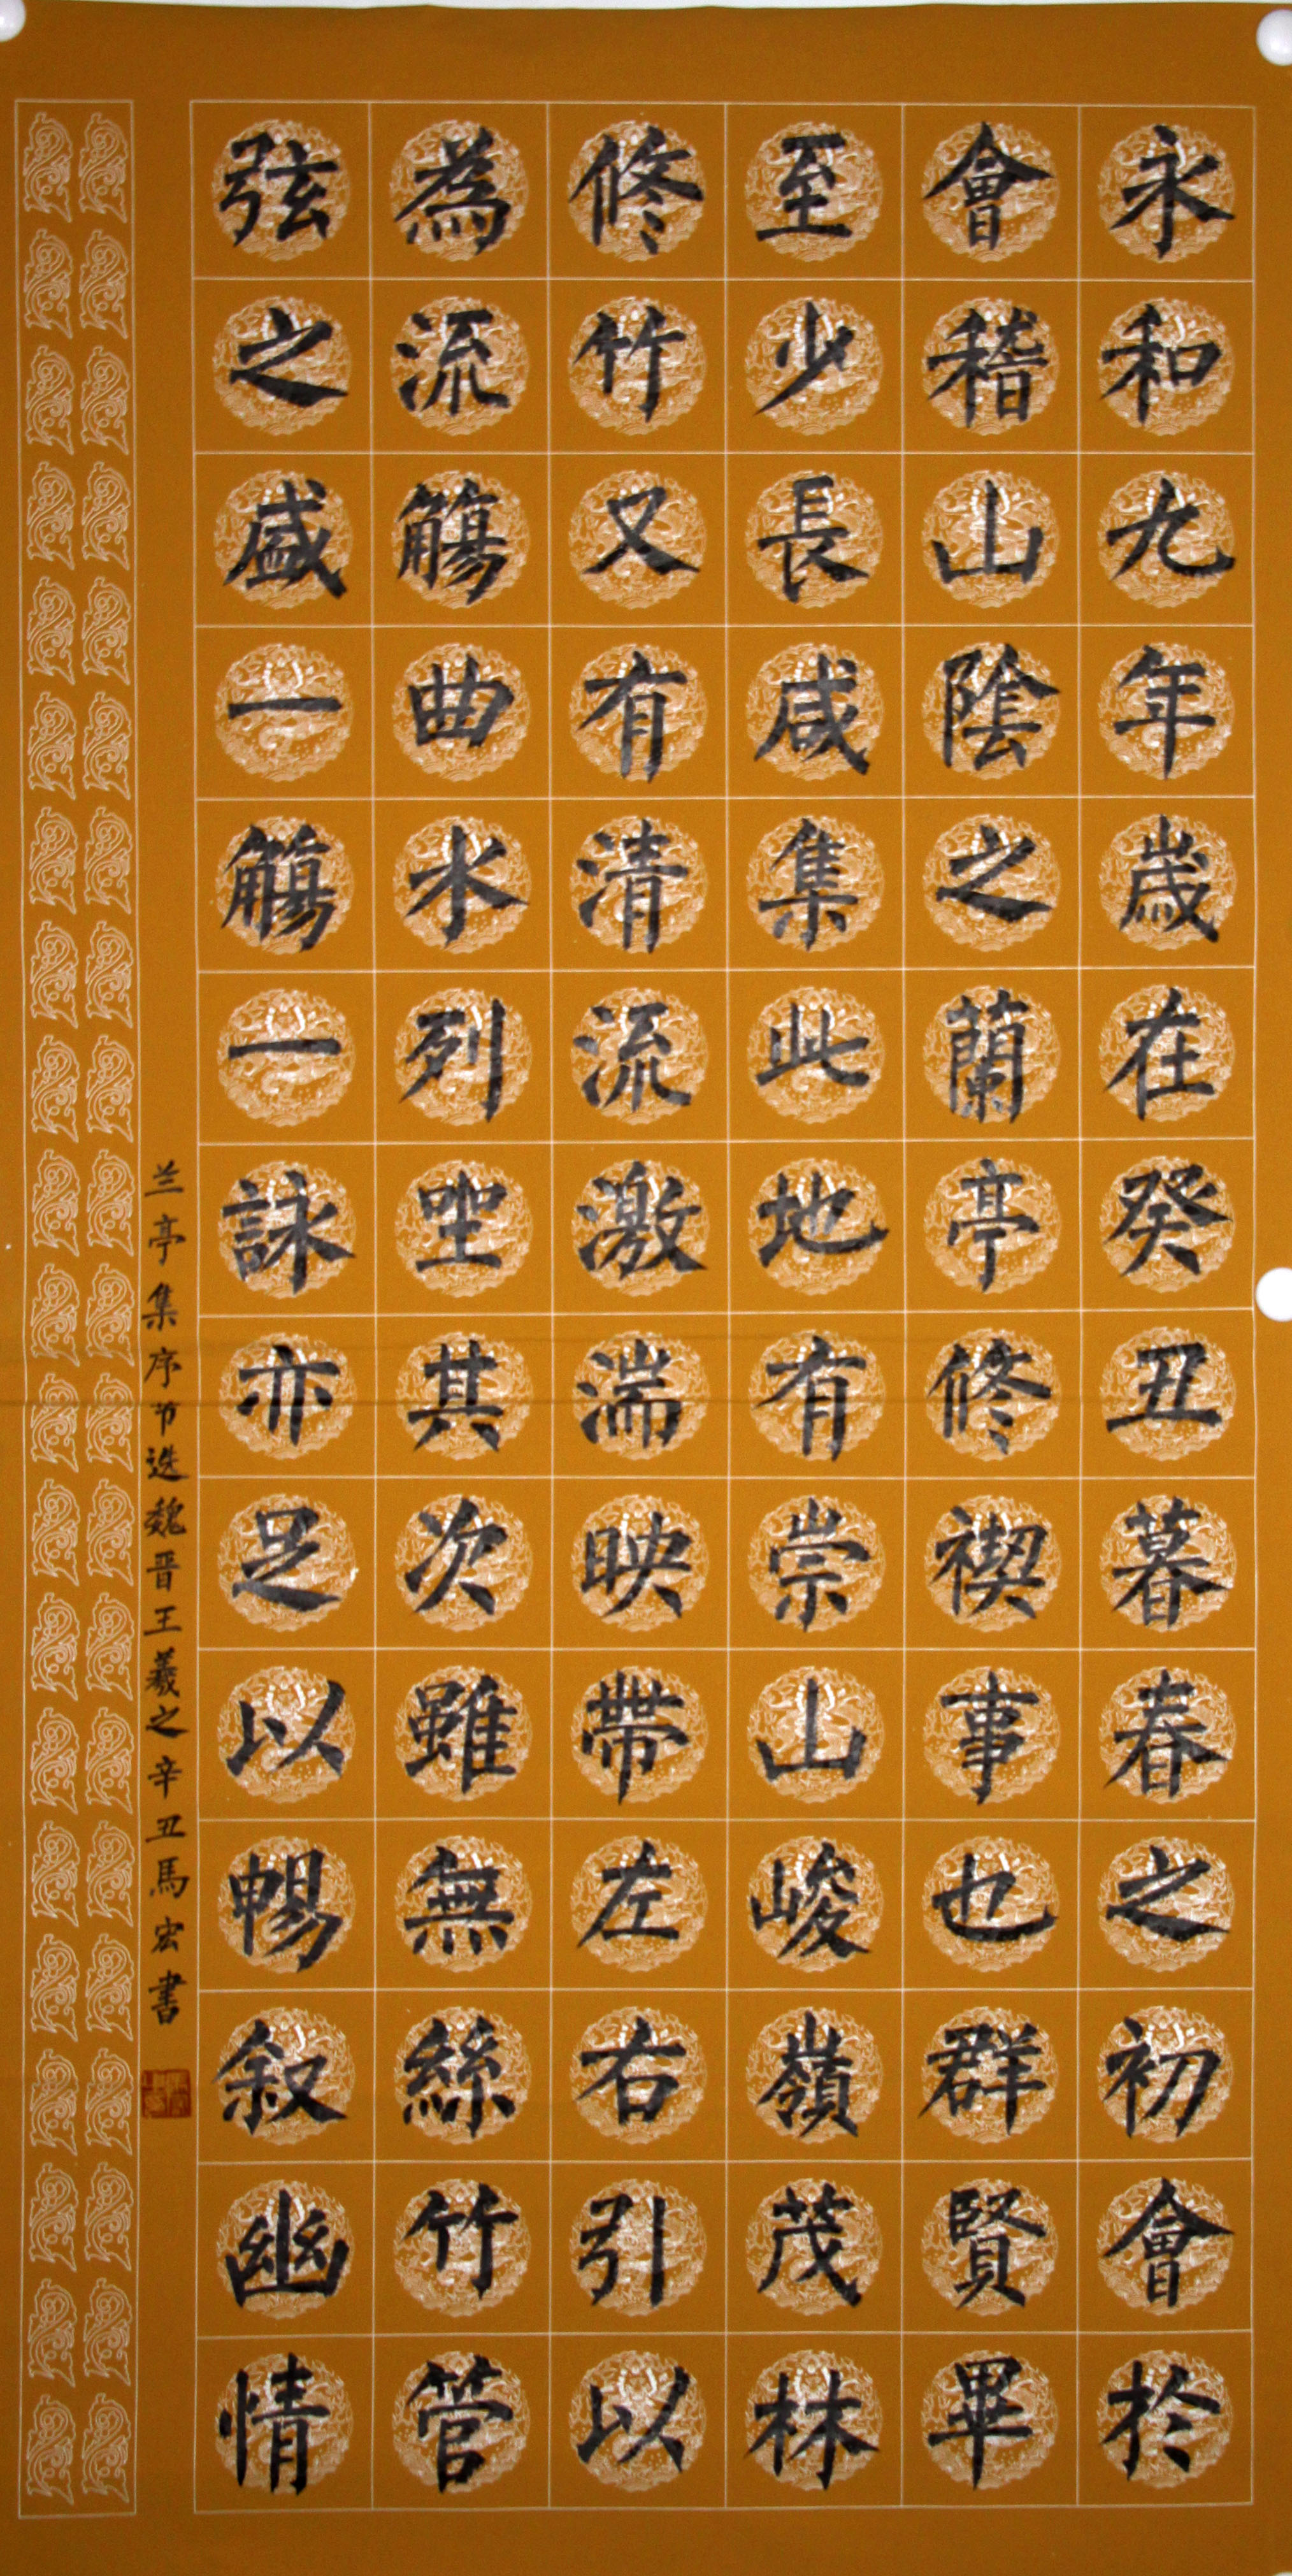 永和九年歲在癸丑暮春之初會於
會稽山陰之蘭亭修禊事也群賢畢
至少長咸集此地有崇山峻嶺茂林
修竹又有清流激湍映帶左右引以
為流觴曲水列坐其次雖無絲竹管
弦之盛一觴一詠亦足以暢敘幽情
兰亭集序节选魏晋王羲之辛丑馬宏書